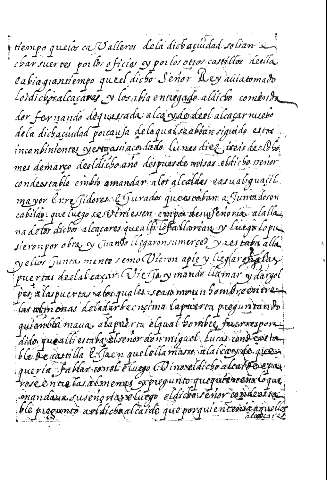 tiempo quelos caValleros dela dichaçiudad solian
e char suertes por los oficios y por los otros castillos della
e abia gran tiempo que el dicho Señor Rey avia tomado
los dichos alcaçares, y los abia entregado al dicho comenda
dor fernando de quessada alcayde del alcaçar nuebo
de la dichaçiudad por causa de la qual se abian siguido estos
inconbinientes lunes diez dias del dicho
mes de março del dicho año despues de misas el dicho señor
condestable enbio a mandar alos alcaldes e asu alguaçil
mayor E rregidores E Jurados que estaban a Juntados en
cabildo que luego se viniessen a su Señoria
na delos dichos alcaçares que alli lo fallarian y luego lo pu
sieron por obra y quando llegaron su merçed ya estaba alla
y ellos Juntamente se mobieron a pie y llegaron alas
puertas del alcaçar Viejo y mando llamar y dar gol
pes alas puertas alos quales se asomo un hombre entre
las almenas dela torre ençima la puerta preguntando
quien llamava a la puerta el qual hombre fue rrespon
dido que alli estaba el señor don miguel Lucas condesta
ble de castilla que llamasse al alcayde que
queria fablar con el E luego Vino el dicho alcayde e pa
rose entre las almenas y pregunto que que era lo que
mandava su señoria E luego el dicho señor condesta
ble pregunto al dicho alcaide que por quien tenia aquellos